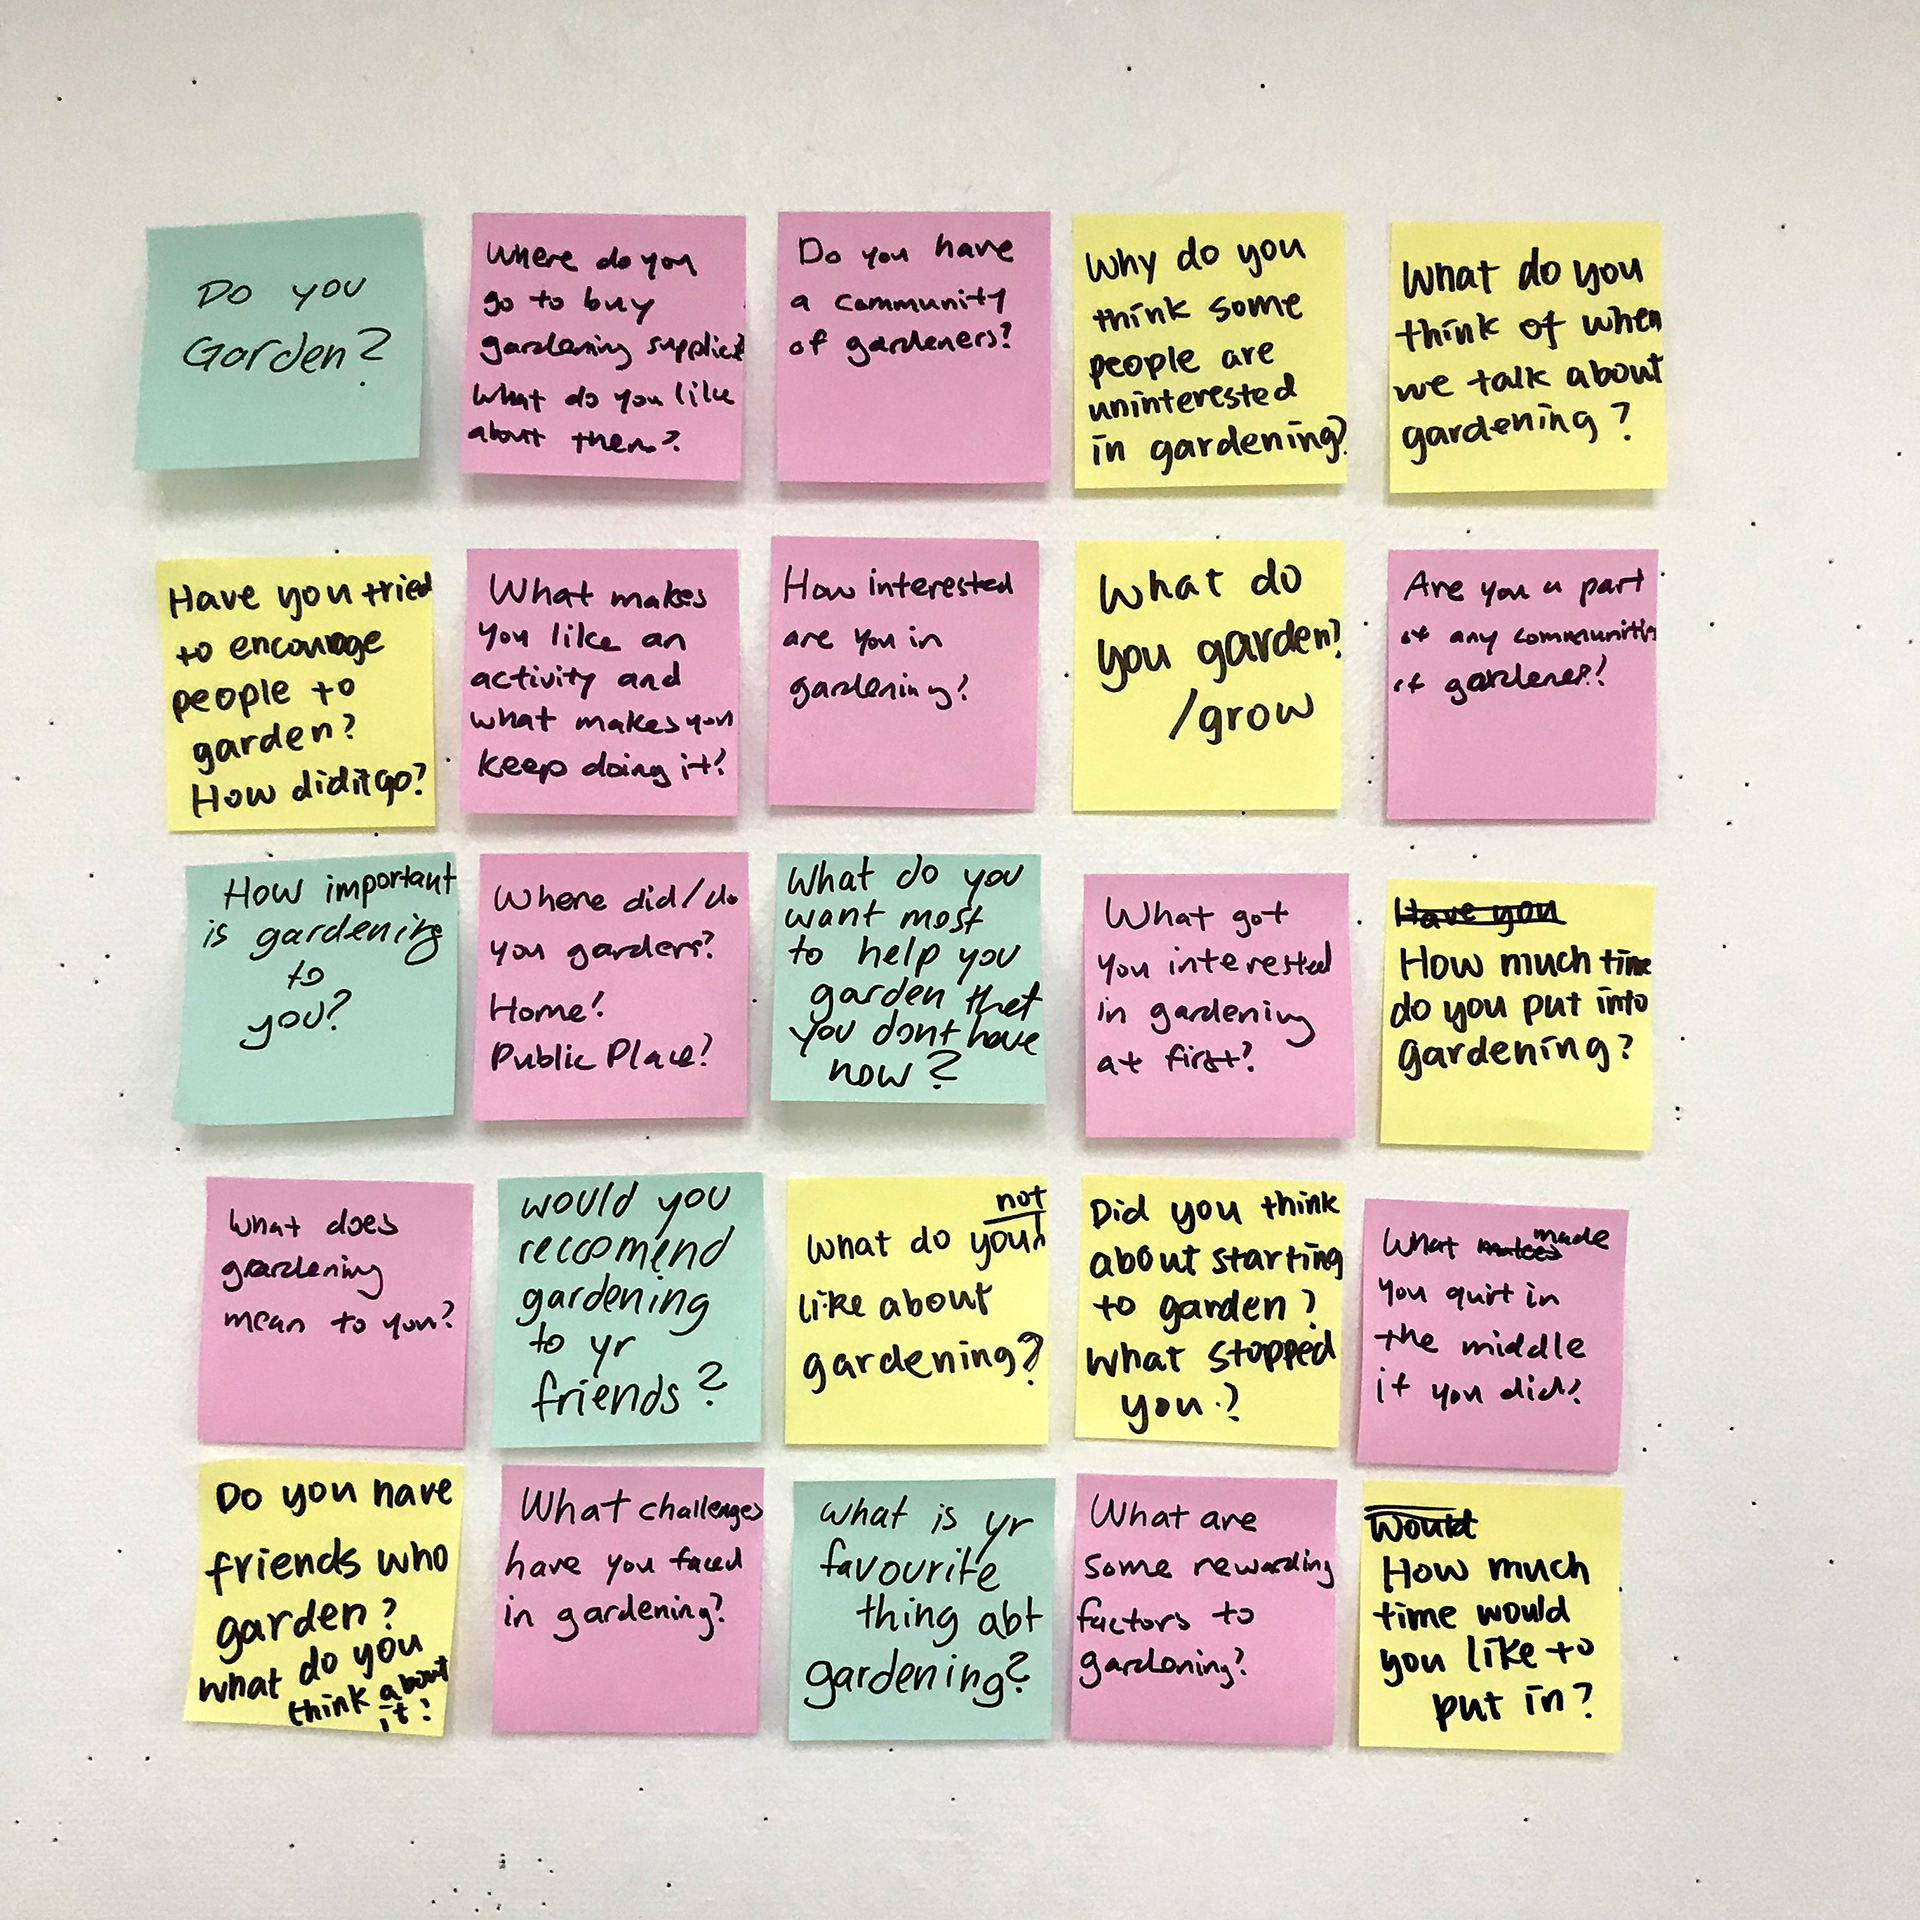 Do you
Garden?
Where do you
go to buy
gardening supplies?
What do you like
about them?
Do you have
a community
of gardeners?
Why do you
think some
people are
uninterested
in gardening?
What do you
think of when
we talk about
gardening?
Have you tried
to encourage
people to
garden?
How did it go?
What makes
you like an
activity and
what makes you
keep doing it?
How interested
are you in
gardening?
What do
you garden?
/grow
Are you a part
of any communities
of gardeners?
How important
is gardening
to
you?
Where did/do
you garden?
Home?
Public Place?
What do you
want most
to help you
garden that
you dont have
now?
What got
you interested
in gardening
at first?
Have you
How much time
do you put into
gardening?
What does
gardening
mean to you?
would you
reccomend
gardening
to yr
friends?
not
What do you
like about
gardening?
Did you think
about starting
to garden?
What stopped
you?
What makes made
you quit in
the middle
if you did?
Do you have
friends who
garden?
What do you
think about
it?
What challenges
have you faced
in gardening?
what is yr
favourite
thing abt
gardening?
What are
some rewarding
factors to
gardening?
Would
How much
time would
you like to
put in?